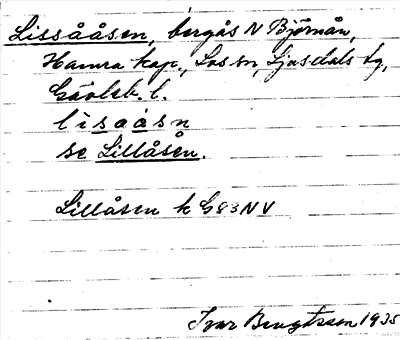 Lissååsen, bergås N Björnån,
Hamra kap., Los sn, Ljusdals tg,
Gävleb. l.
lisåsn
se Lillåsen.
Lillåsen k G83NV
Ivar Bengtsson 1935